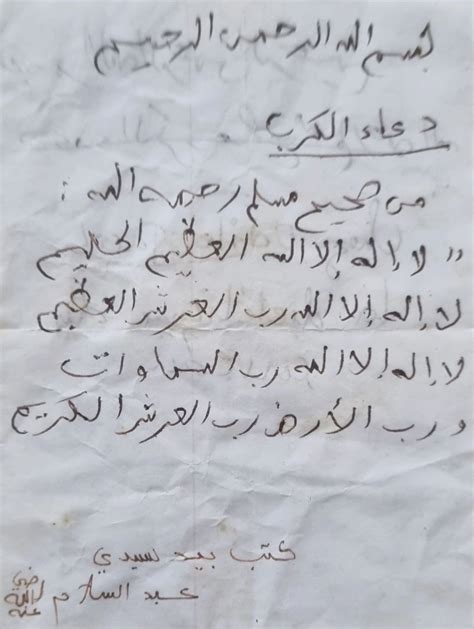 بسم الله الرحمن الرحيم
دعاء الكرب
من صحيح مسلم رحمه الله :
" لا إله إلا الله العظيم الحليم
لا إله إلا الله رب العرش العظيم
لا إله إلا الله رب السماوات
ورب الأرض رب العرش الكريم
كتب بيد سيدي
عبد السلام رضي الله عنه